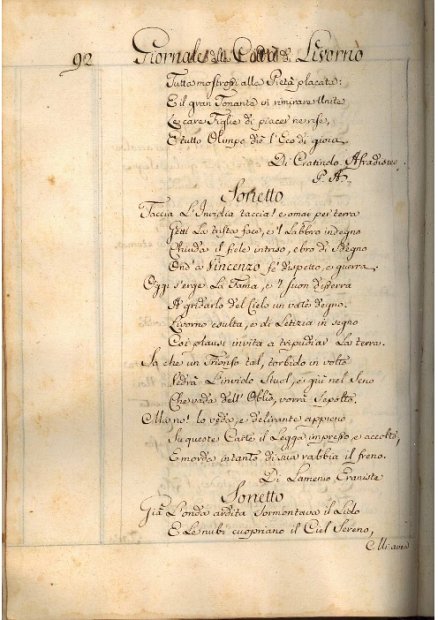 92 Giornale della Città di Livorno
Tutta mostrossi alla Pietà placata:
E il gran Tonante in rimirare Unite
Le care Figlie di piacer ne rise,
E tutto Olimpo diè l'Eco di gioia.
Di Cratindo Afradisieo
P. A.
Sonetto
Taccia L'Invidia taccia! e omai per terra
Getti La trista face, e 'l Labbro indegno
Chiuda il fiele intriso, ebro di Sdegno
Ond' a Vincenzo fè dispetto, e guerra.
Oggi s'erge La Fama, e 'l suon disserra
A gridarlo del Cielo un vato degno:
Livorno esulta, e di Letizia in segno
Coi plausi invita a tripudiar La terra.
Sa che un Trionfo tal, torbido in volto
Vedrà L'invido Stuol, e giù nel Seno
Che vada dell' Oblio, vorrà Sepolto.
Ma no! lo veda, e delirante appieno
In queste Carte il Legga impresso, e accolto,
E morda intanto di sua rabbia il freno.
Di Lamenio Eranista
Sonetto
Già L'onda ardita Sormontava il Lido
E Le nubi cuopriano il Ciel Sereno,